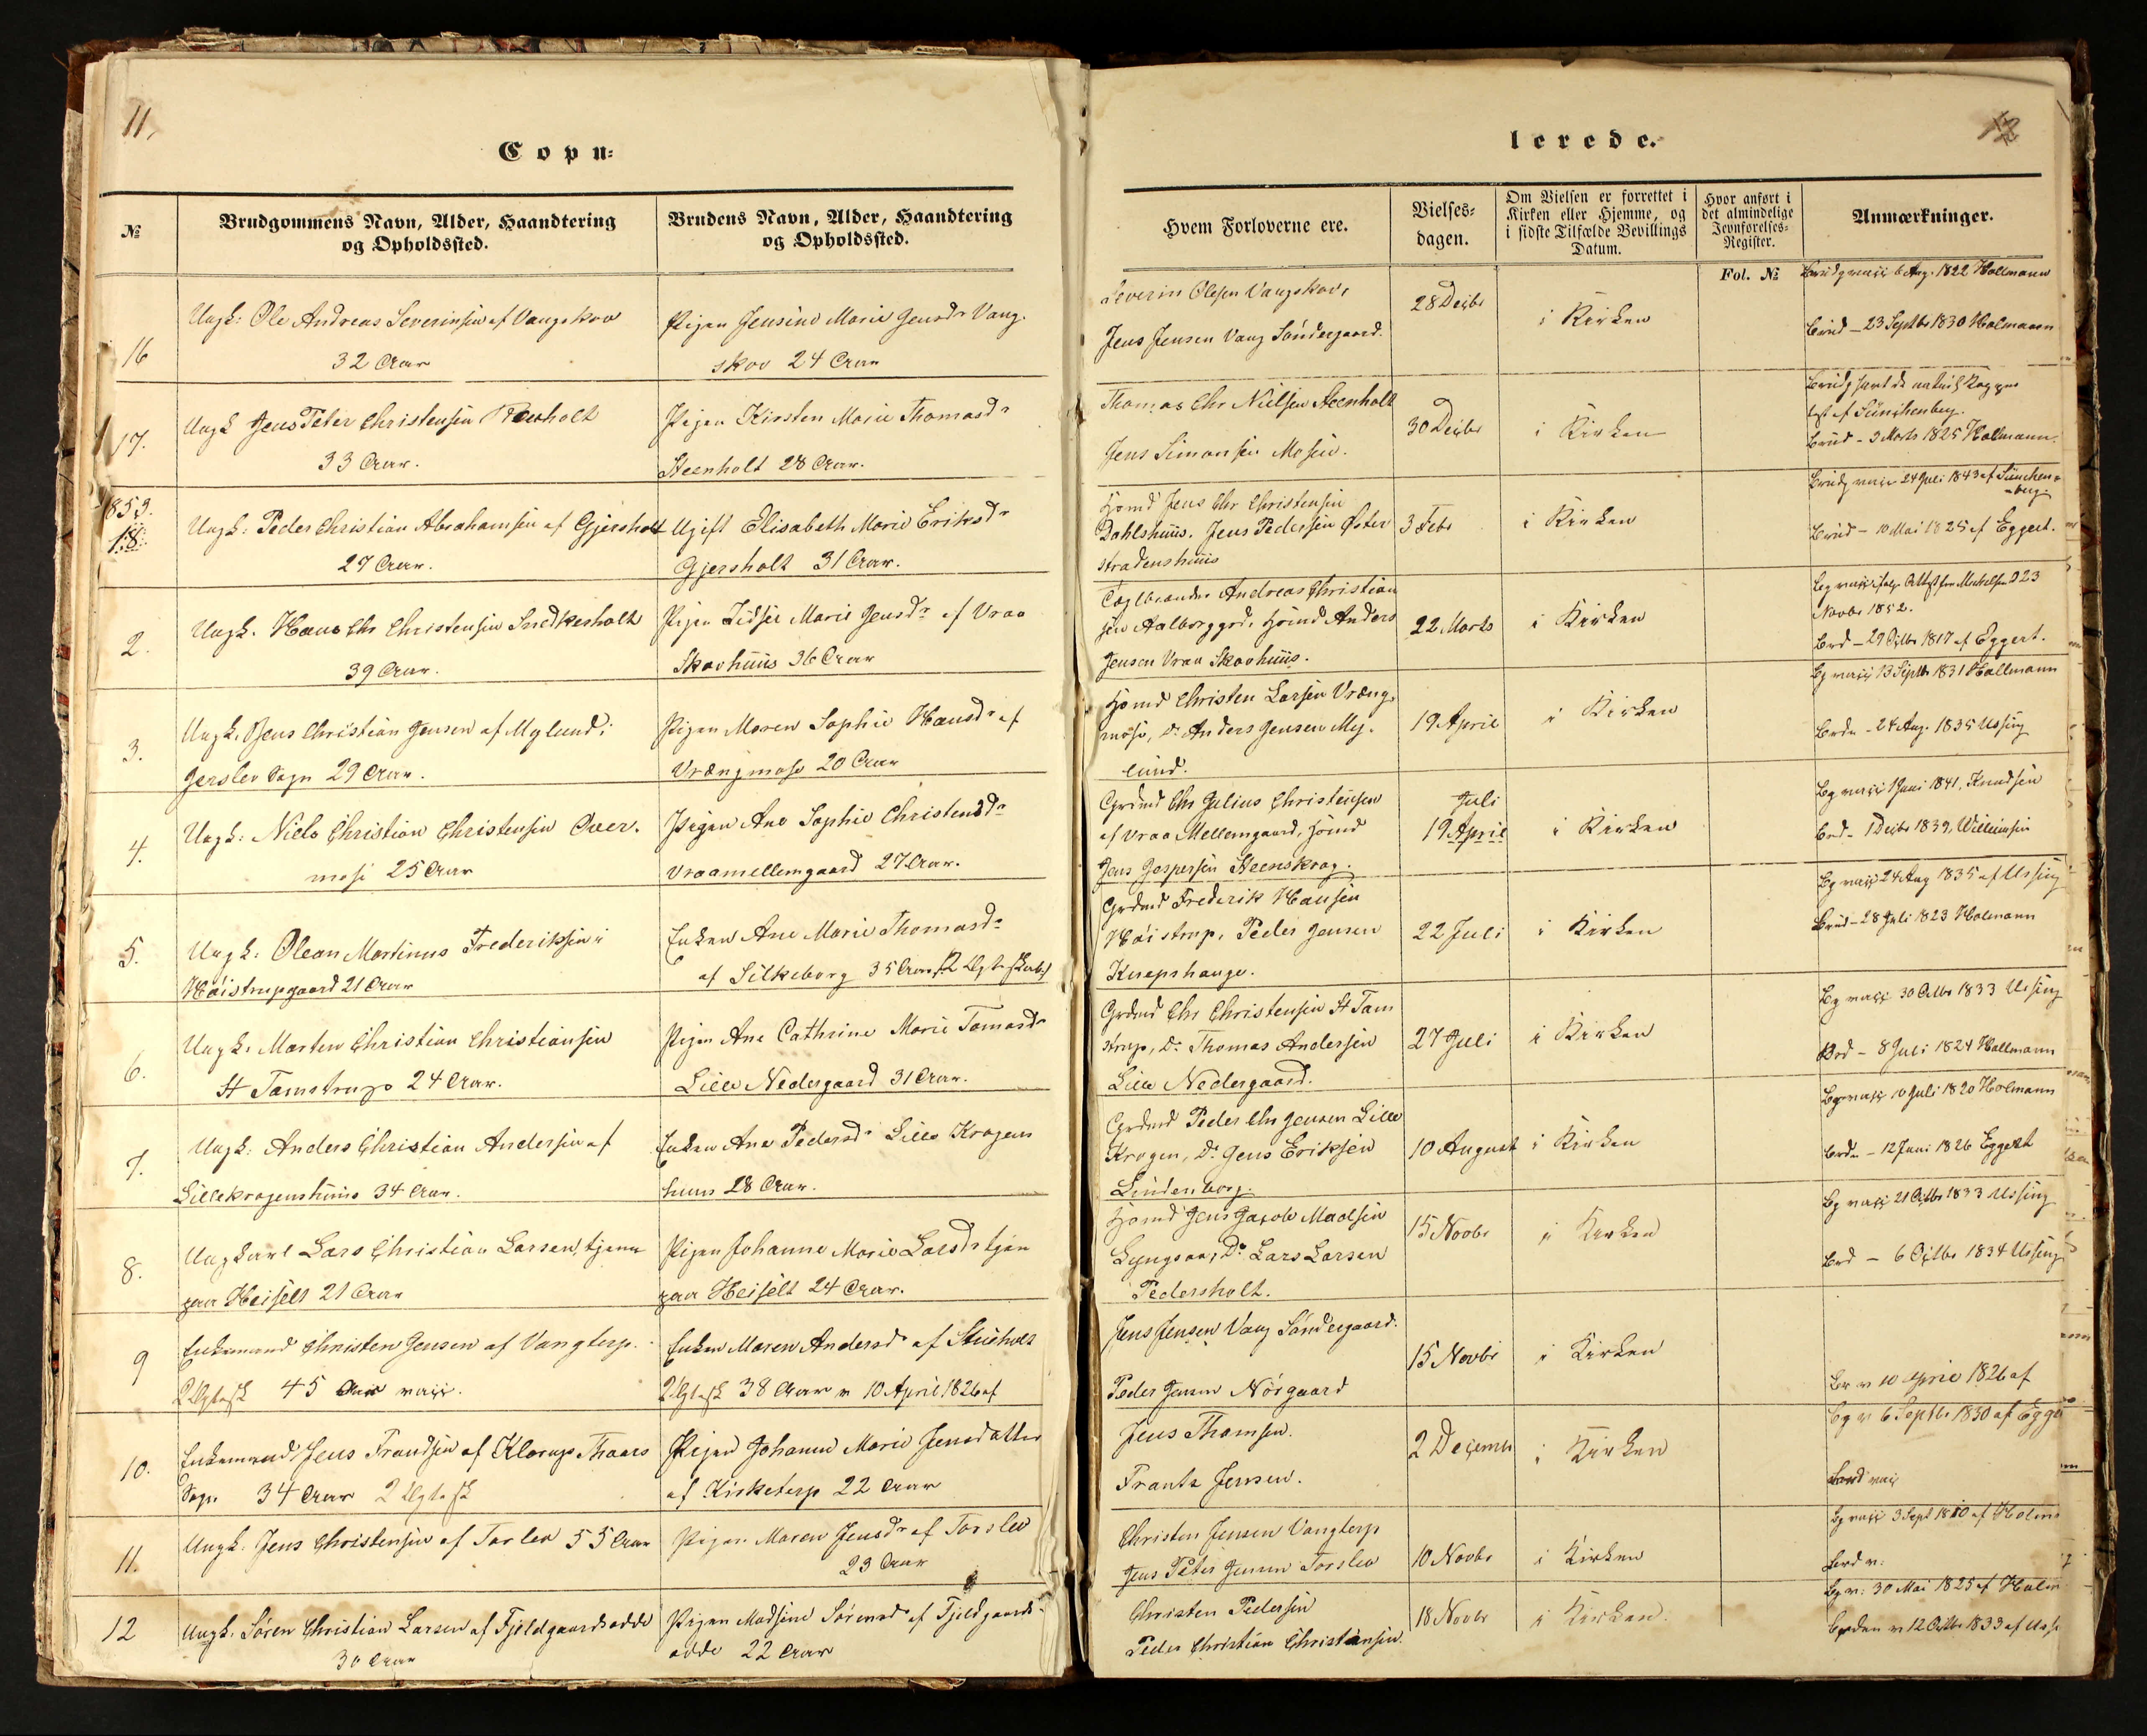 11,
Copu=
lerede.
№
Brudgommens Navn, Alder, Haandtering
og Opholdssted.
Brudens Navn, Alder, Haandtering
og Opholdssted.
Hvem Forloverne ere.
Vielses=
dagen.
Om Vielsen er forrettet i
Kirken eller Hjemme, og
i sidste Tilfælde Bevillings
Datum.
Hvor anført i
det almindelige
Jevnførelses=
Register.
Fol. №
Anmærkninger.
16
Ungk: Ole Andreas Severinsen af Vangskov
32 Aar
Pigen Jensine Marie Jensdr Vang-
skov 24 Aar
Severin Olesen Vangskov,
Jens Jensen Vang Söndergaard.
28 Decbr
i Kirken
Brudg vacc 6 Aug. 1822 Hollmann
Brud – 23 Septbr 1830 Holmann
17.
Ungk Jens Peter Christensen
33 Aar.
Pigen Kirsten Marie Thomasdr
Steenholt 28 Aar.
Thomas Chr Nielsen Steenholt
Jens Simonsen Mosen.
30 Decbr
i Kirken
Brud – 3 Marts 1825 Hollmann.
1853.
1.
Ungk: Peder Christian Abrahamsen af Gjersholt
27 Aar.
Ugift Elisabeth Marie Eriksdr
Gjersholt 31 Aar.
Hsmd Jens Chr Christensen
Dahlshuus. Jens Pedersen Øster
stradenshuus
3 Febr
i Kirken
Brudg vacc 24 Juli 1843 af
Brud – 10 Mai 1825 af Eggert.
2.
Ungk. Hans Chr Christensen Snedkerholt
39 Aar.
Pigen Zidsel Marie Jensdr af Vraa
Skovhuus 36 Aar
Andreas Christian
sen Aalborggrd. Hsmd Anders
Jensen Vraa Skovhuus.
22 Marts
i Kirken
Novbr 1852.
Brd – 29 Octbr 1817 af Eggert.
3.
Ungk. Jens Christian Jensen af Mylund i
Jerslev Sogn 29 Aar.
Pigen Maren Sophie Hansdr af
Vrængmose 20 Aar
Hsmd Christen Larsen Vræng-
mose, Do Anders Jensen My-
lund.
19 April
i Kirken
Bg vacc 13 Septbr 1831 Hallmann
Brdn – 24 Aug. 1835 Ussing
4.
Ungk: Niels Christian Christensen Over-
mose 25 Aar
Pigen Ane Sophie Christensdr
Vraamellemgaard 27 Aar.
Grdmd Chr Julius Christensen
af Vraa Mellemgaard, Hsmd
Jens Jespersen Steenskrog.
Juli
19 April
i Kirken
Bg vacc 1 Juni 1841. Knudsen
Brd – 1 Decbr 1839, Willumsen
5.
Ungk: Olean Martinus Frederiksen i
Höistrupgaard 21 Aar
Enken Ane Marie Thomasdr
af Silkeborg 35 Aar /: 2 Ægteskab :/
Grdmd Frederik Hansen
Höistrup, Peder Jensen
Knepshauge.
22 Juli
i Kirken
Bg vacc 24 Aug 1835 af Ussing
Brud – 28 Juli 1823 Holmann
6.
Ungk: Morten Christian Christiansen
St Tamstrup 24 Aar.
Pigen Ane Cathrine Marie Tomasdr
Lille Nedergaard 31 Aar.
Grdmd Chr Christensen St Tam
strup, Do Thomas Andersen
Lille Nedergaard.
27 Juli
i Kirken
Bg vacc 30 Octbr 1833 Ussing
Brd – 8 Juli 1824 Hallmann
7.
Ungk: Anders Christian Andersen af
Lillekrogenshuus 34 Aar.
Enken Ane Pedersdr Lille Krogens
huus 28 Aar.
Grdmd Peder Chr Jensen Lille
Krogen, Do Jens Eriksen
Lindenborg.
10 August
i Kirken
Bg vacc 10 Juli 1820 Holmann
Brdn – 12 Juni 1826 Eggert
8.
Ungkarl Lars Christian Larsen, tjener
paa Heiselt 21 Aar
Pigen Johanne Marie Larsdr tjen
paa Heiselt 24 Aar.
Hsmd Jens Jacob Madsen
Lyngsaa, Do Lars Larsen
Pedersholt.
15 Novbr
i Kirken
Bg vacc 21 Octbr 1833 Ussing
Brd – 6 Octbr 1834 Ussing
9
Enkemand Christen Jensen af Vangterp.
2 Ægtesk 45 Aar vacc.
Enken Maren Andersdr af
2 Ægtesk 38 Aar v 10 April 1826 af
Jens Jensen Vang Söndergaard.
Peder Jensen Nörgaard
15 Novbr
i Kirken
Br v 10 April 1826 af
10.
Enkemand Jens Frandsen af Klarup Thaars
Sogn 34 Aar 2 Ægtesk
Pigen Johanne Marie Jensdatter
af Kirketerp 22 Aar
Jens Thomsen.
Frants Jensen.
2 Decemb
i Kirken
Bg v 6 Septbr 1830 af Egge
Brd vacc
11.
Ungk. Jens Christensen af Torslev 55 Aar
Pigen Maren Jensdr af Torslev
23 Aar
Christen Jensen Vangterp
Jens Peter Jensen Torslev
10 Novbr
i Kirken
Bg vacc 3 Sept 1810 af Holm
Brd v:
12
Ungk. Søren Christian Larsen af Fjeldgaardsodde
30 Aar
Pigen Madsine Sörensdr af Fjeldgaards-
odde 22 Aar
Christen Pedersen
Peder Christian Christensen.
18 Novbr
i Kirken.
Bg v: 30 Mai 1825 af Holm
Bruden v 12 Octbr 1833 af Uss